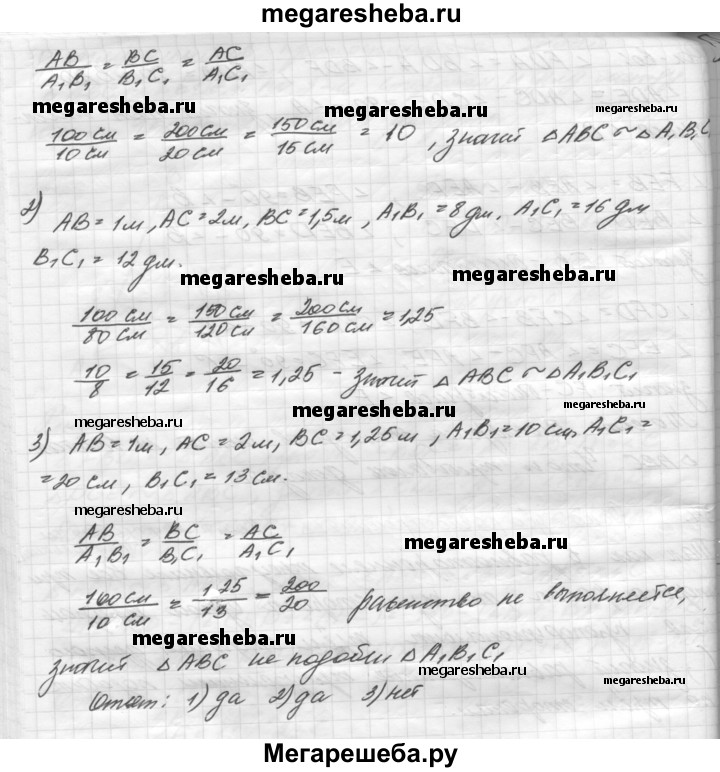 megaresheba.ru
AB/A₁B₁ = BC/B₁C₁ = AC/A₁C₁
megaresheba.ru megaresheba.ru megaresheba.ru
100 см/10 см = 200 см/20 см = 150 см/15 см = 10, значит △ABC ~ △A₁B₁C
2) AB = 1 м, AC = 2 м, BC = 1,5 м, A₁B₁ = 8 дм, A₁C₁ = 16 дм
B₁C₁ = 12 дм.
megaresheba.ru megaresheba.ru
100 см/80 см = 150 см/120 см = 200 см/160 см = 1,25
10/8 = 15/12 = 20/16 = 1,25 - значит △ABC ~ △A₁B₁C₁
megaresheba.ru megaresheba.ru megaresheba.ru
3) AB = 1 м, AC = 2 м, BC = 1,25 м, A₁B₁ = 10 см, A₁C₁ =
= 20 см, B₁C₁ = 13 см.
megaresheba.ru
AB/A₁B₁ = BC/B₁C₁ = AC/A₁C₁
megaresheba.ru
100 см/10 см = 125/13 = 200/20 равенство не выполняется,
megaresheba.ru
значит △ABC не подобен △A₁B₁C₁
megaresheba.ru
Ответ: 1) да 2) да 3) нет
megaresheba.ru
Мегарешеба.ру